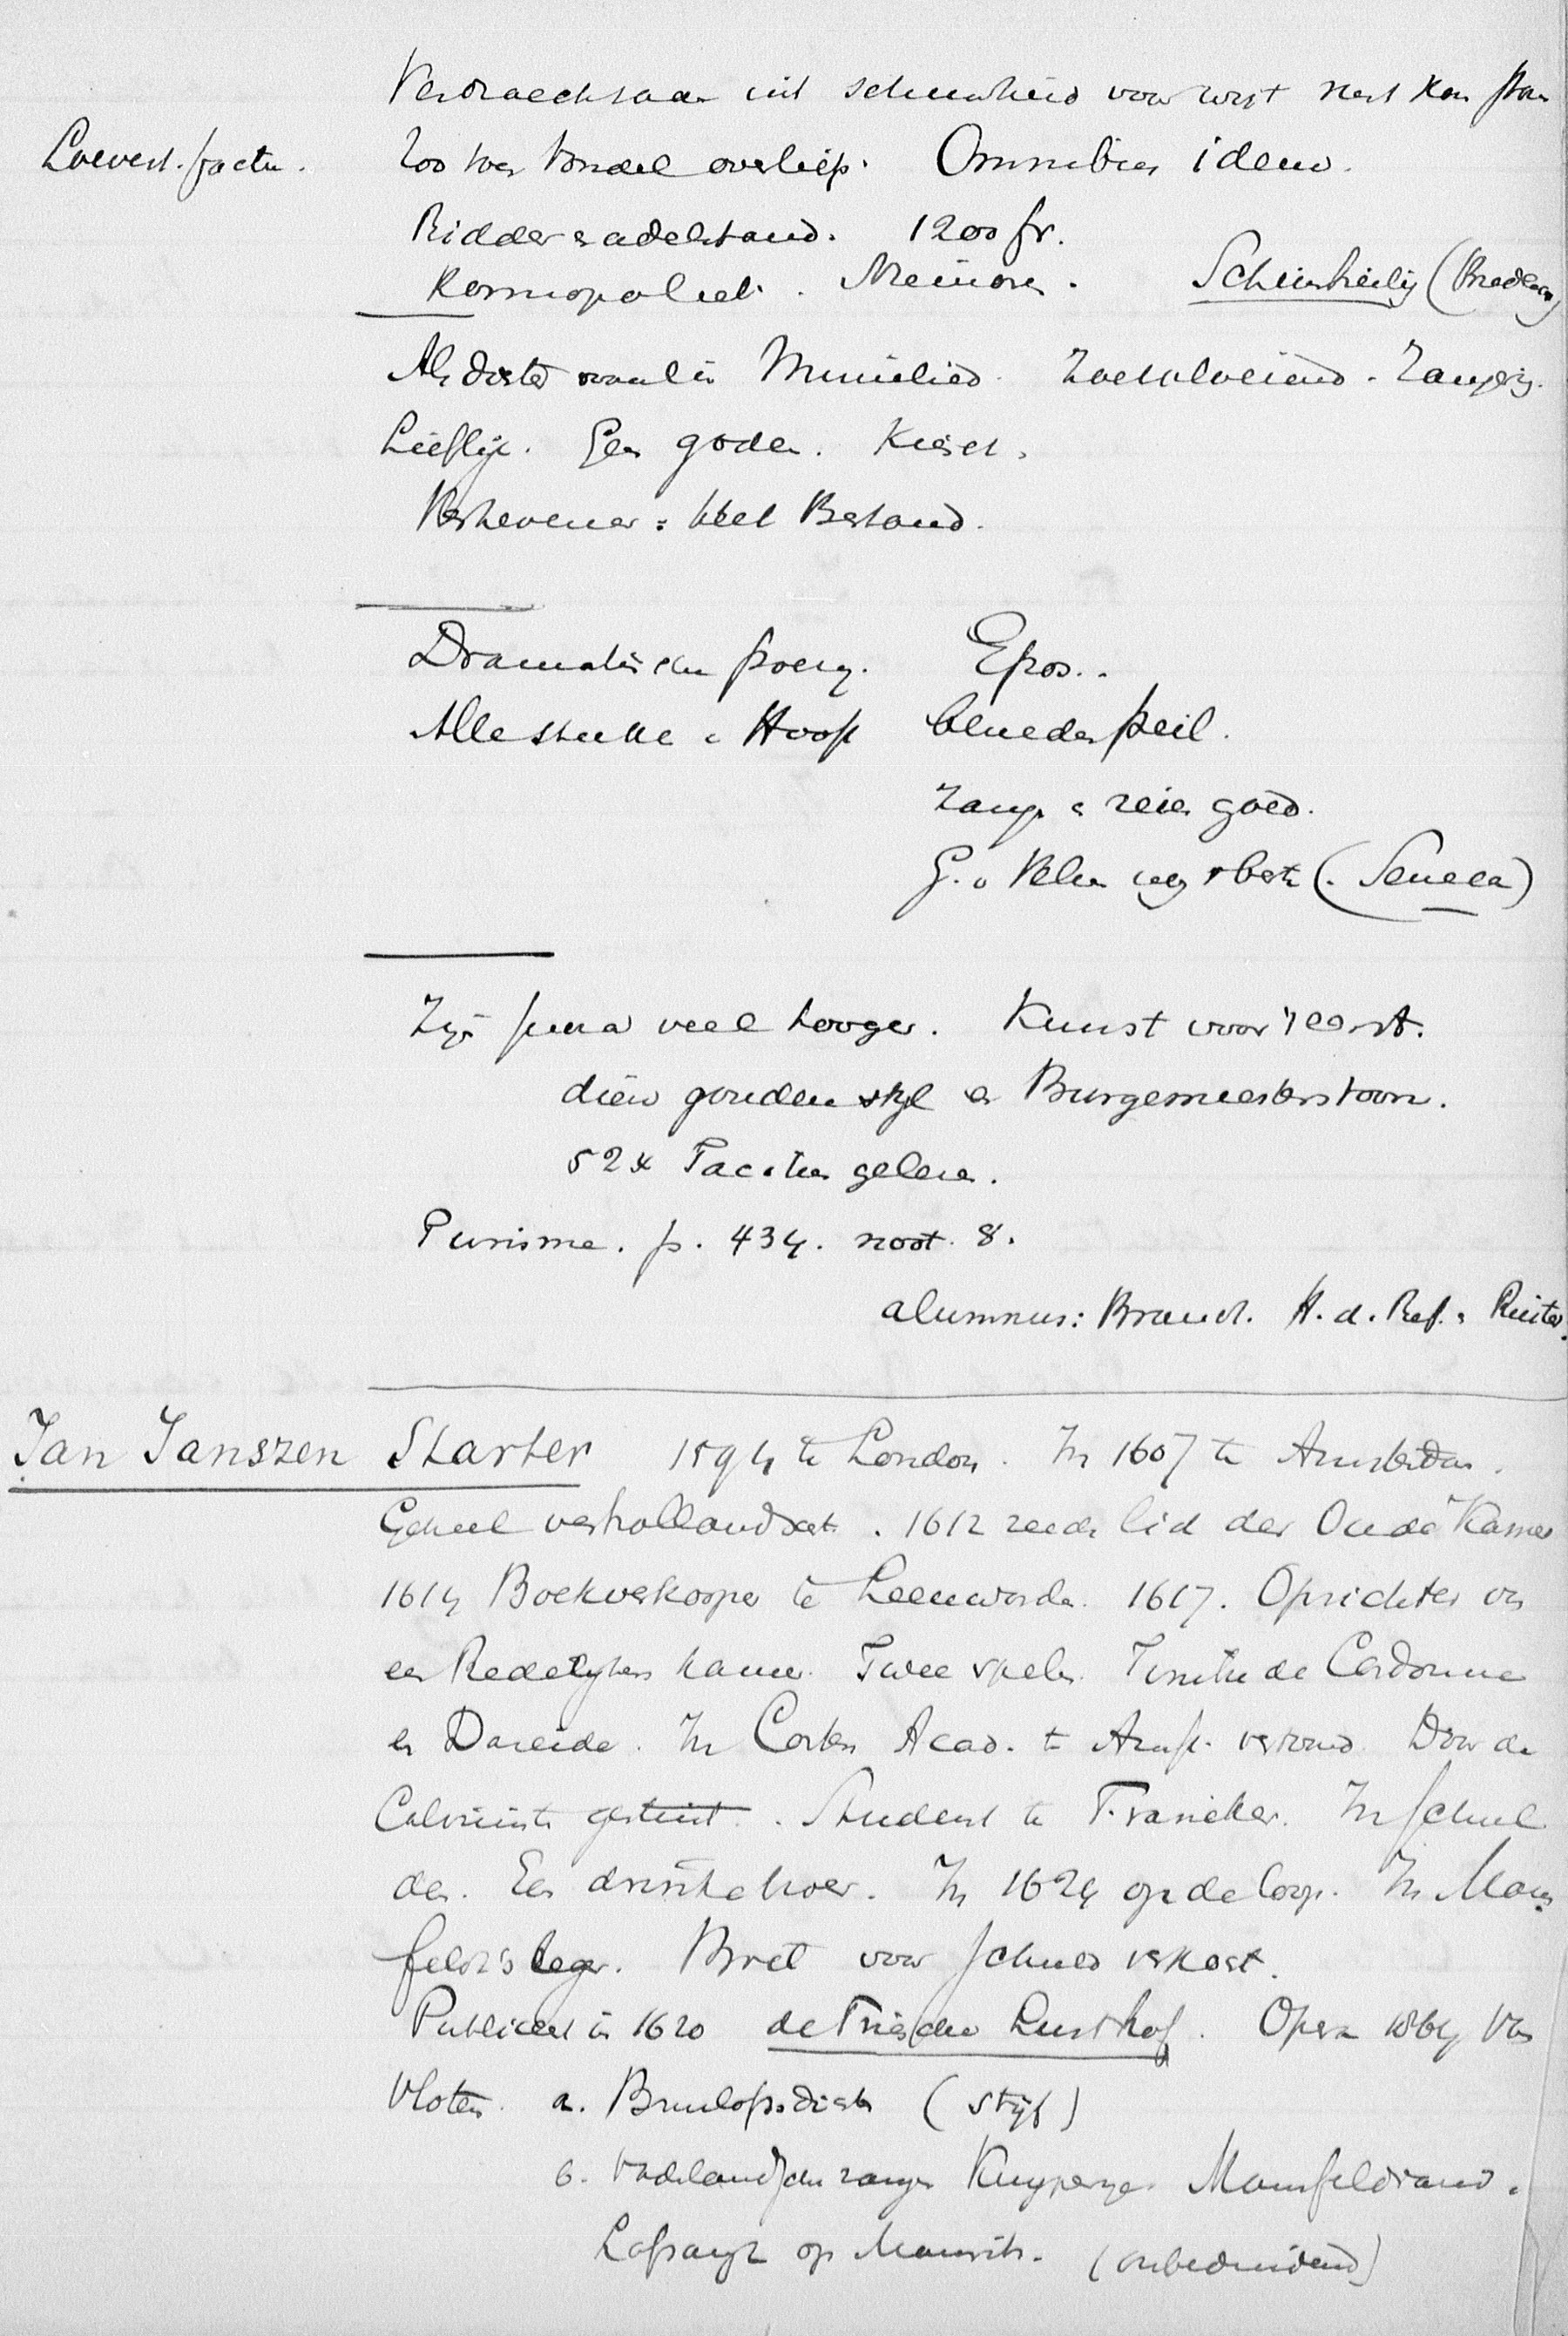 Verdraechsaam uit schuwheid voor twist Niet kon staan
Loevest. factie. Zoo toen Vondel overliep. Omnibus idem.
Ridder & adelstand. 1200 fr.
Kosmopoliet. Meinoner. Schijnheilig (Brederoo)
Als dichter vooral in Minnelied. Zoetvloeiend. Zangerig.
Lieflijk. Gen goden. Kiesch.
Verhevener: Wel Bestand.
Dramatische poezy. Epos..
Alle stukke v Hooft beneden peil.
Zang & reien goed.
G. v Velsen nog 't beste (. Seneca)
Zijn proza veel hooger. Kunst voor 't eerst.
dien gouden styl en Burgemeesterstoon.
52x Tacitus gelezen.
Purisme. p. 434. noot. 8.
alumnus: Brandt. H. d. Ref. & Ruiter.
Jan Janszen Starter 1594 te London. In 1607 te Amsterdam.
Geheel verhollandscht. 1612 reeds lid der Oude Kamer
1614 Boekverkooper te Leeuwarden. 1617. Oprichter van
een Rederijkers kamer. Twee spelen. Timbre de Cardonne
en Daraide. In Costers Acad. te Amst. vertoond. Door de
Calvinisten gestuit. Student te Franeker. In schul
den. Een drinkebroer. In 1624 op de loop. In Mans
felds leger. Bret voor schuld verkocht.
Publiceert in 1620 de Friesche Lusthof. Opera 1864 Van
Vloten. a. Bruilofsdichten (Stijf)
b. Vaderlandsche zangen Kuyperye. Mansfeldiaend.
Lofzang op Maurits. (onbeduidend)